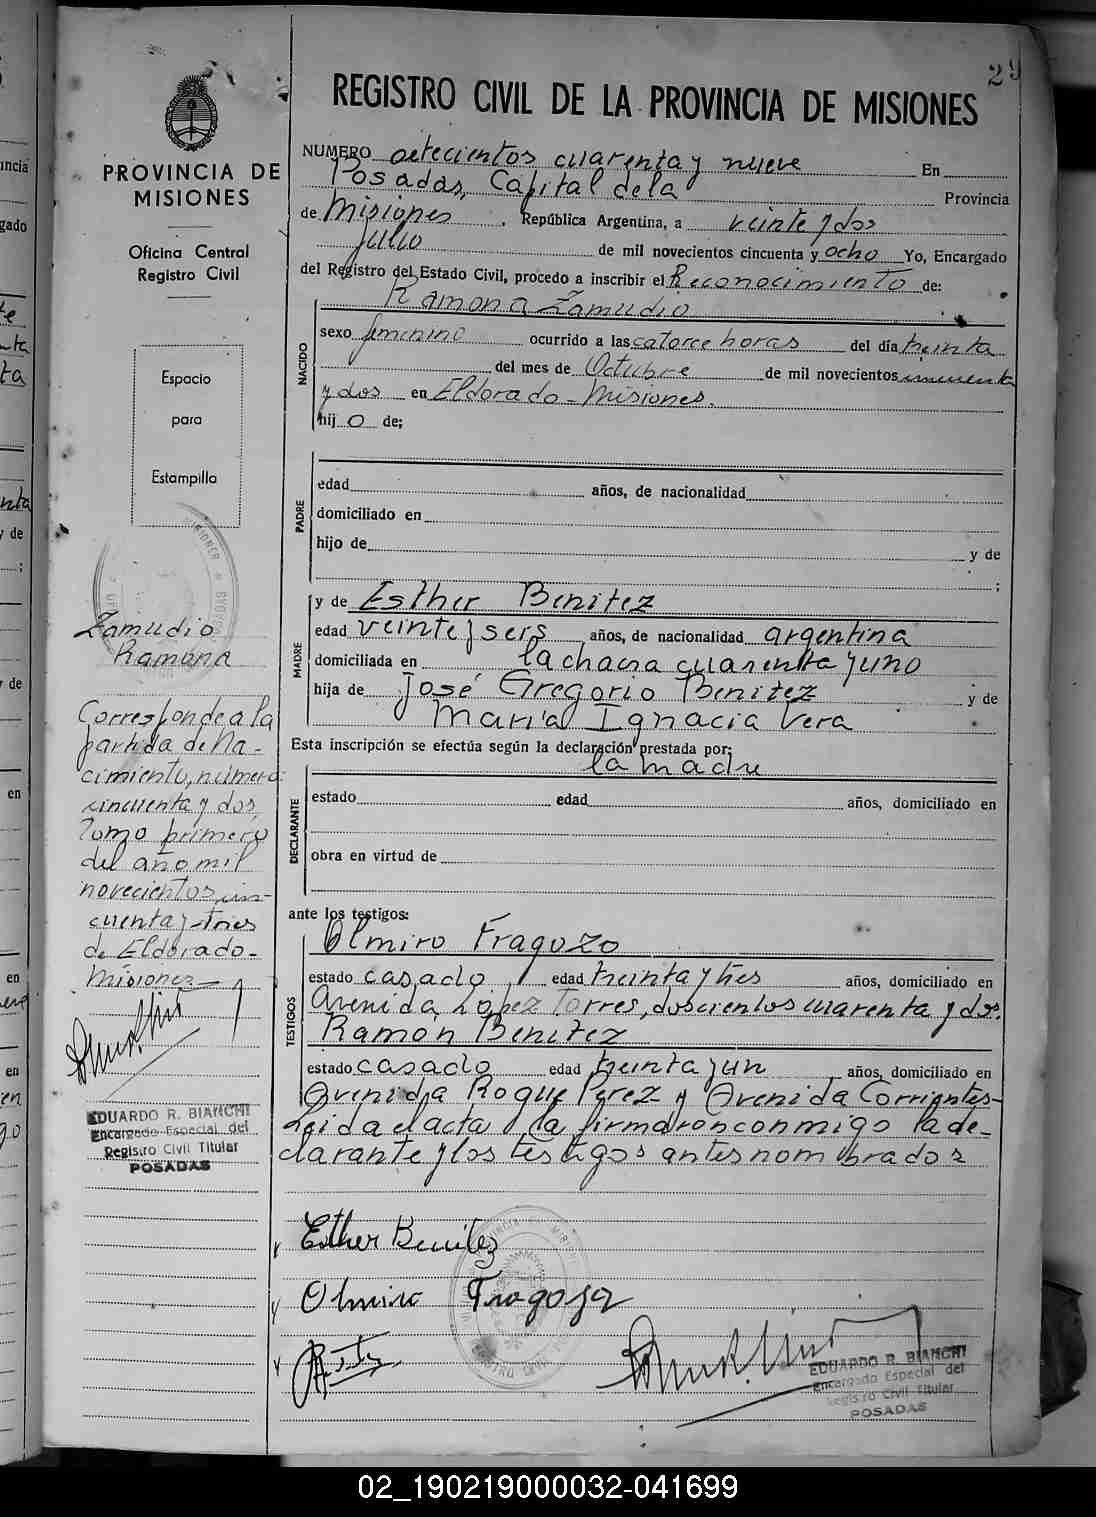 29
REGISTRO CIVIL DE LA PROVINCIA DE MISIONES
PROVINCIA DE
MISIONES
Oficina Central
Registro Civil
Espacio
para
Estampilla
Zamudio
Ramona
Corresponde a la
partida de Na-
cimiento, número
cincuenta y dos,
Tomo primero
del año mil
novecientos cin-
cuenta y tres
de Eldorado-
Misiones
EDUARDO R. BIANCHI
Encargado Especial del
Registro Civil Titular
POSADAS
NUMERO setecientos cuarenta y nueve En
Posadas, Capital de la Provincia
de Misiones, República Argentina, a veinte y dos
Julio de mil novecientos cincuenta y ocho Yo, Encargado
del Registro del Estado Civil, procedo a inscribir el Reconocimiento de:
Ramona Zamudio
NACIDO
sexo femenino ocurrido a las catorce horas del día treinta
del mes de Octubre de mil novecientos cincuenta
y dos en Eldorado - Misiones.
hij o de;
PADRE
edad años, de nacionalidad
domiciliado en
hijo de y de
;
MADRE
y de Esther Benitez
edad veinte y seis años, de nacionalidad argentina
domiciliada en la chacra cuarenta y uno
hija de José Gregorio Benitez y de
María Ignacia Vera
Esta inscripción se efectúa según la declaración prestada por:
la madre
DECLARANTE
estado edad años, domiciliado en
obra en virtud de
ante los testigos:
TESTIGOS
Olmiro Fragozo
estado casado edad treinta y tres años, domiciliado en
Avenida Lopez Torres, doscientos cuarenta y dos.
Ramon Benitez
estado casado edad treinta y un años, domiciliado en
Avenida Roque Perez y Avenida Corrientes-
Leida el acta la firmaron conmigo la de-
clarante y los testigos antes nombrados
Esther Benitez
Olmiro Fragoza
EDUARDO R. BIANCHI
Encargado Especial del
Registro Civil Titular
POSADAS
02_190219000032-041699